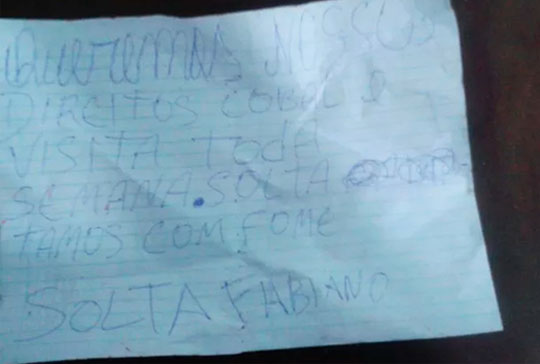 QUEREMOS NOSSOS
DIREITOS COBAL E
VISITA TODA
SEMANA. SOLTA
TAMOS COM FOME
SOLTA FABIANO